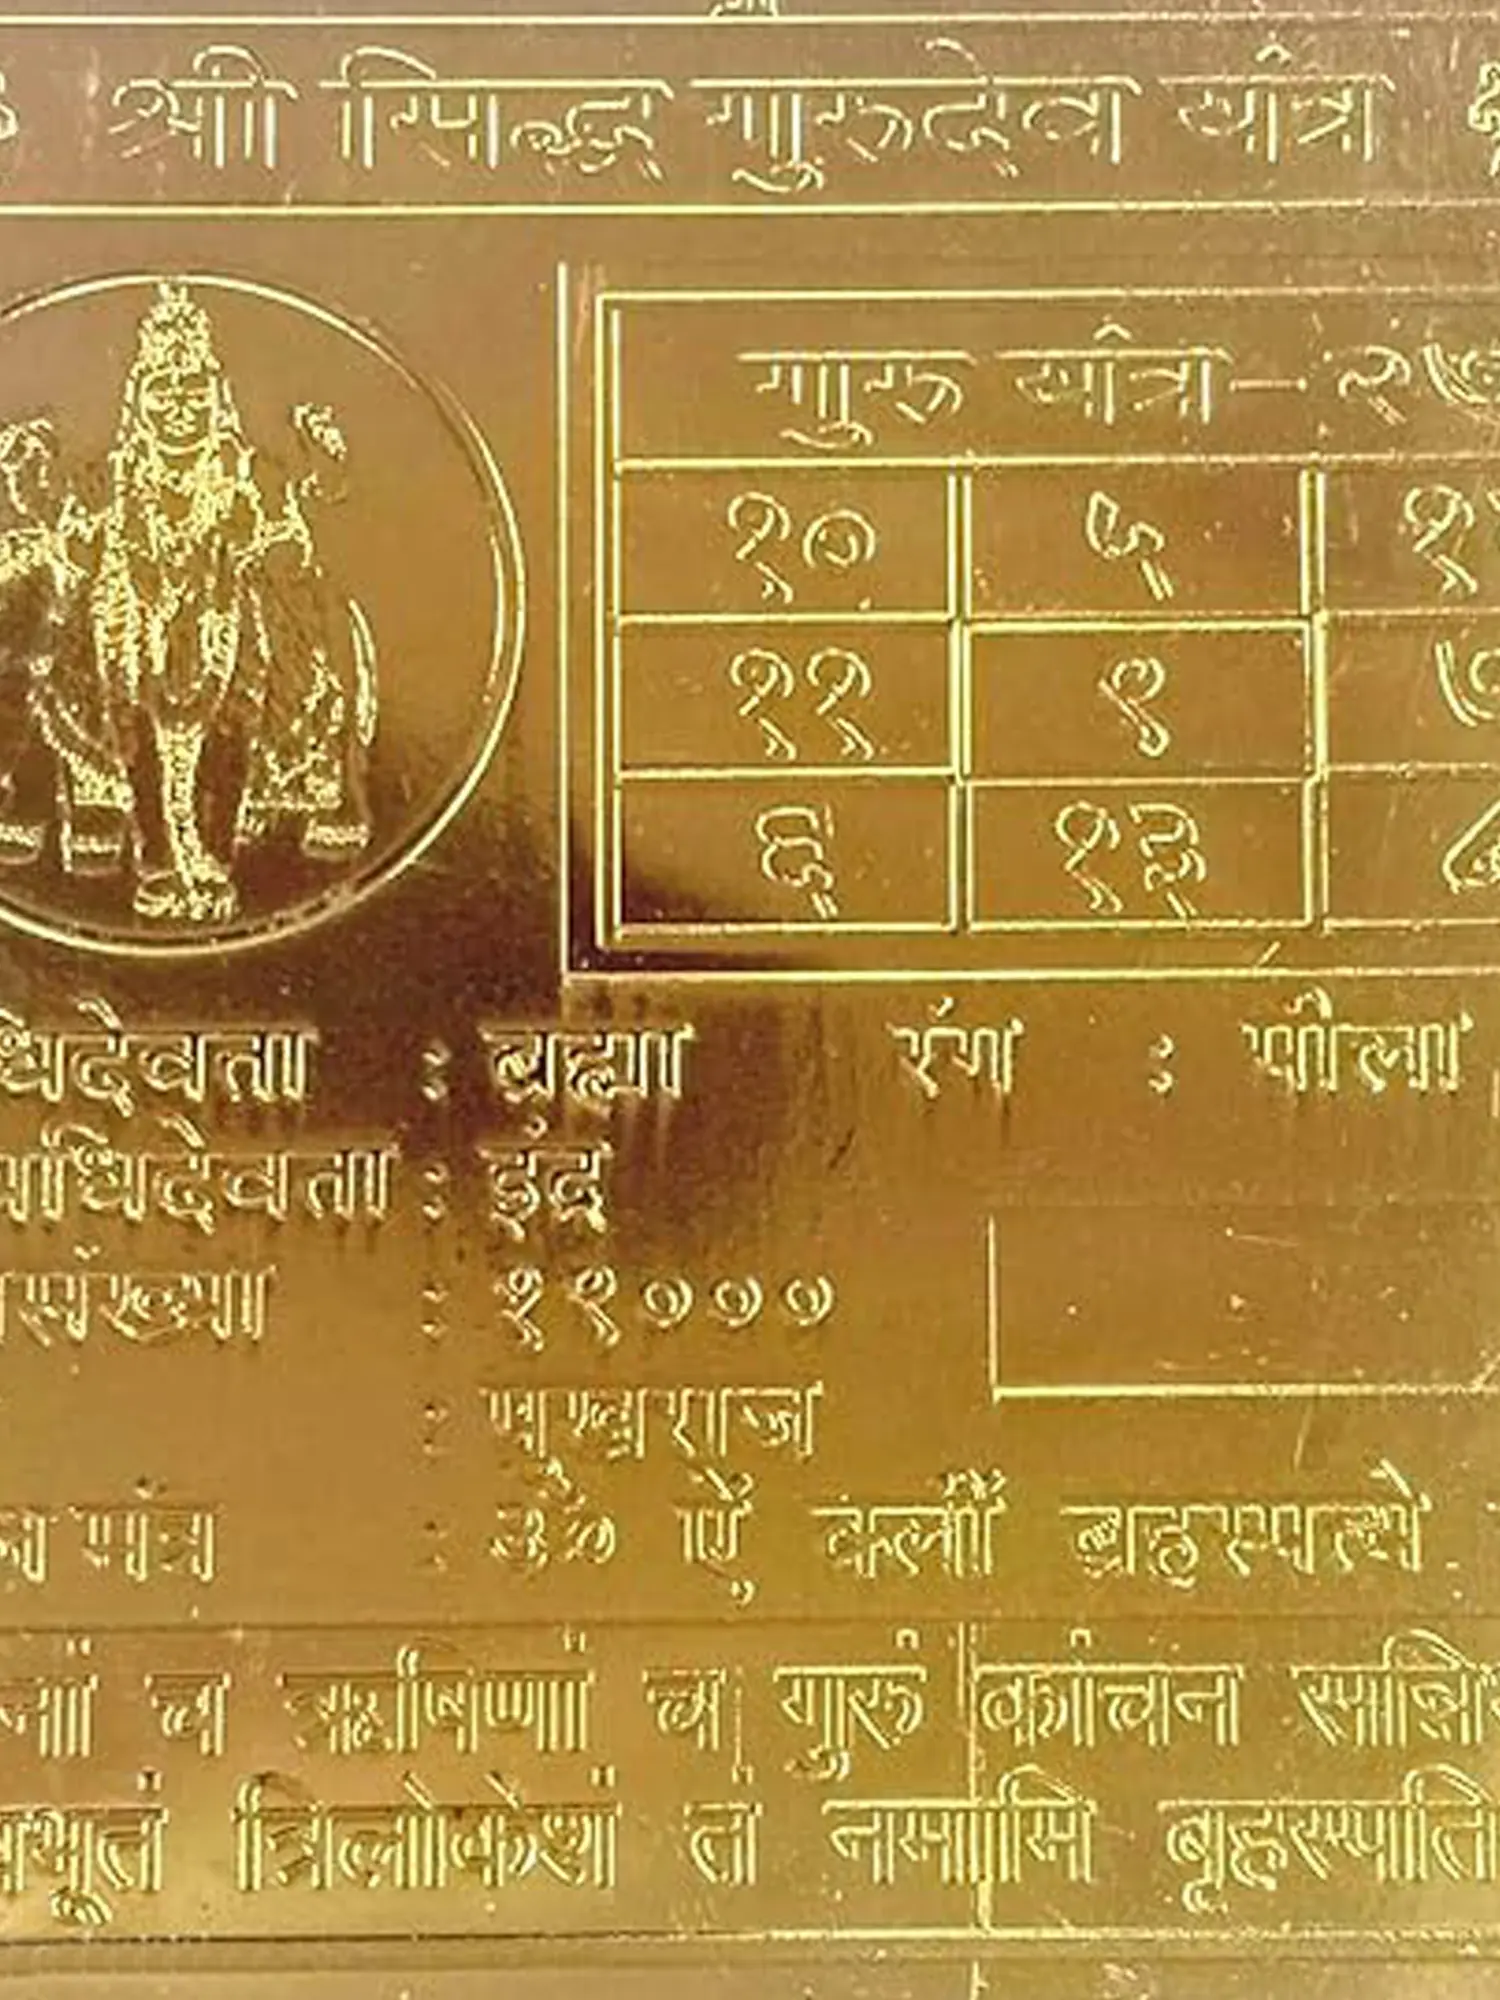 श्री सिद्ध गुरुदेव यंत्र
गुरु यंत्र - २७
१० ५
११ ९ ७
६ १३ ८
धिदेवता : ब्रह्मा रंग : पीला
अधिदेवता : इंद्र
संख्या : ११०००
: पुखराज
मंत्र : ॐ ऐं क्लीं ब्रहस्पत्ये
नां च ऋषिणां च गुरुं कांचन सन्नि
भूतं त्रिलोकेशं तं नमामि बृहस्पति